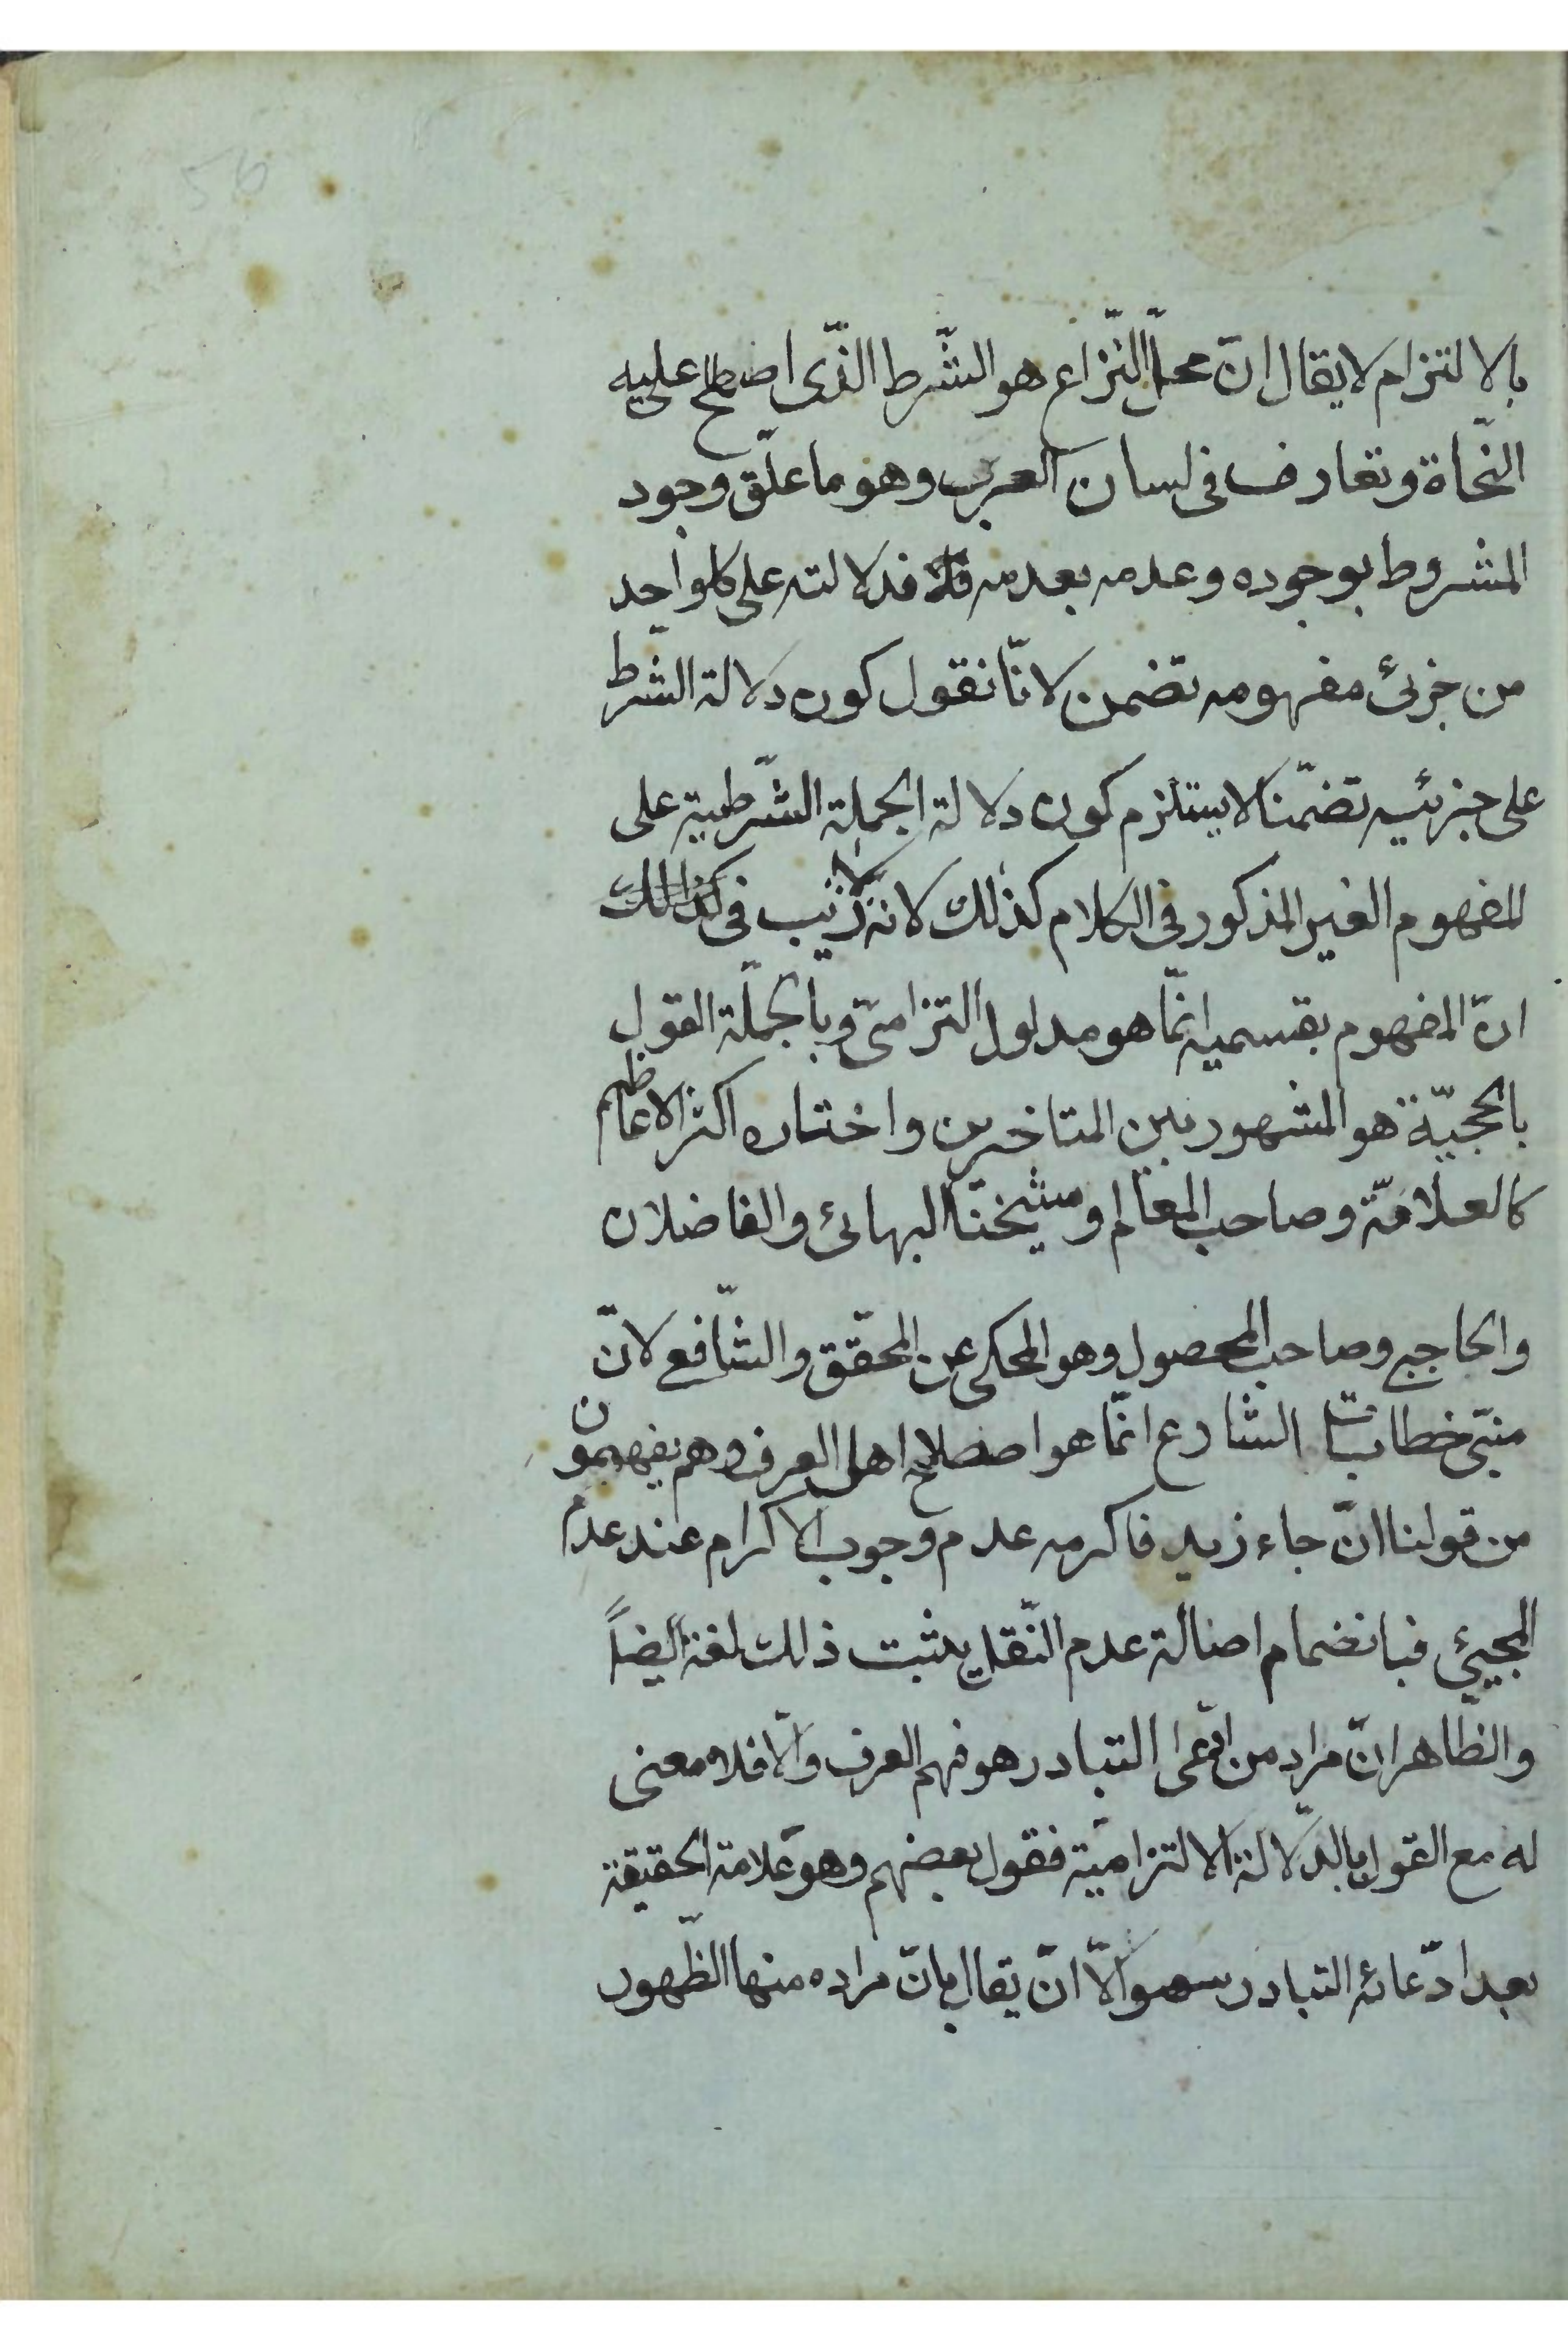 56
بالالتزام لا يقال انّ محلّ النّزاع هو الشّرط الذّى اصطلح عليه
النّحاة وتعارف فى لسان العرب وهو ما علّق وجود
المشروط بوجوده وعدمه بعدمه فدلالته على كلواحد
من جزئى مفهومه تضمن لانّا نقول كون دلالة الشّرط
على جزئيه تضمّنا لا يستلزم كون دلالة الجملة الشّرطية على
المفهوم الغير المذكور فى الكلام كذلك لانه لا ريب فى
انّ المفهوم بقسميه انّما هو مدلول التزامىّ وبالجملة القول
بالحجيّة هو المشهور بين المتاخرين واختاره اكثر الاعاظم
كالعلامّة وصاحب المعالم وشيخنا البهائى والفاضلان
والحاجبى وصاحب المحصول وهو المحكى عن المحقّق والشّافع لانّ
مبنى خطابات الشارع انّما هو اصطلاح اهل العرف وهم يفهمون
من قولنا انّ جاء زيد فاكرمه عدم وجوب الاكرام عند عدم
المجيئ فبانضمام اصالة عدم النّقل يثبت ذالك لغة ايضاً
والظّاهر انّ مراد من ادّعى التبادر هو فهم العرف والّا فلا معنى
له مع القول بالدّلالة الالتزاميّة فقول بعضهم وهو علامة الحقيقة
بعد ادّعائه التبادر سهو الّا انّ يقال بانّ مراده منها الظّهور